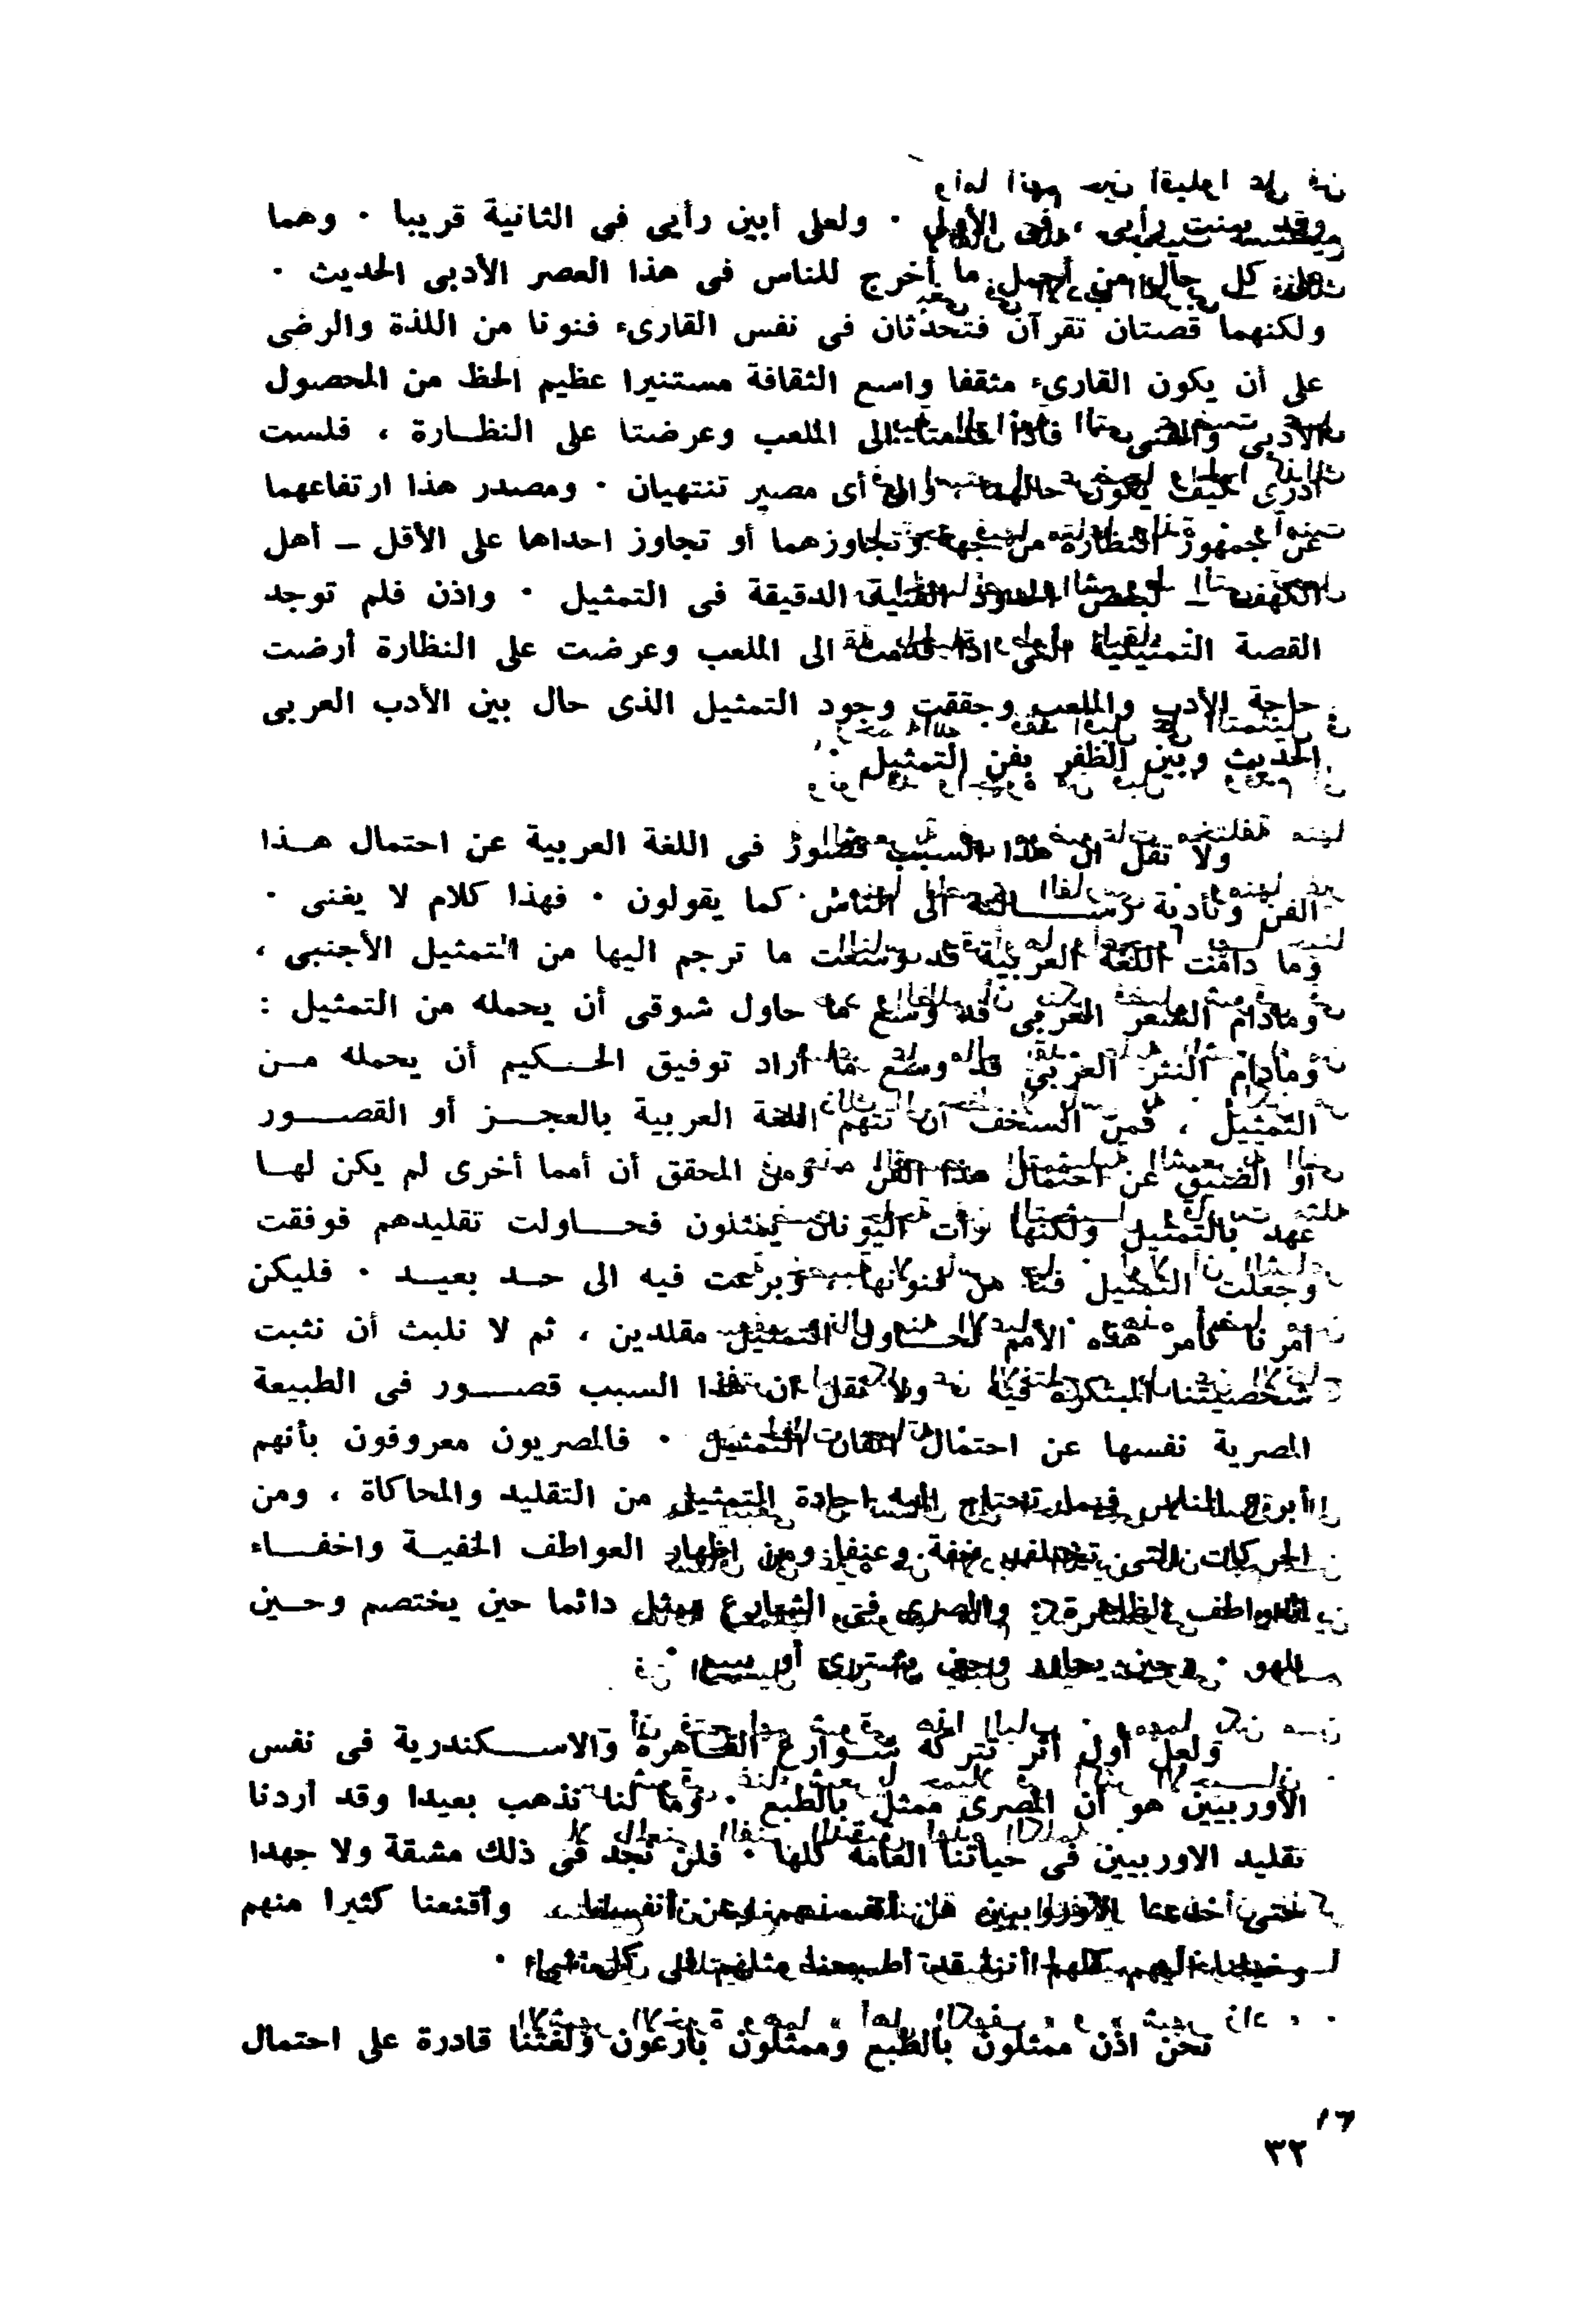 وقد بينت رأيى فى الأولى . ولعلى أبين رأيى فى الثانية قريبا . وهما
على كل حال من أجمل ما أخرج للناس فى هذا العصر الأدبى الحديث .
ولكنهما قصتان تقرآن فتحدثان فى نفس القارىء فنونا من اللذة والرضى
على أن يكون القارىء مثقفا واسع الثقافة مستنيرا عظيم الحظ من المحصول
الأدبى والفنى فاذا قدمتا الى الملعب وعرضتا على النظارة ، فلست
أدرى كيف يكون حالهما ، والى أى مصير تنتهيان . ومصدر هذا ارتفاعهما
عن جمهور النظارة من جهة وتجاوزهما أو تجاوز احداها على الأقل - أهل
الكهف - لبعض الحدود الفنية الدقيقة فى التمثيل . واذن فلم توجد
القصة التمثيلية التى اذا قدمت الى الملعب وعرضت على النظارة أرضت
حاجة الأدب والملعب وحققت وجود التمثيل الذى حال بين الأدب العربى
الحديث وبين الظفر بفن التمثيل .
ولا تقل ان هذا السبب قصور فى اللغة العربية عن احتمال هـذا
الفن وتأدية رسـالته الى الناس كما يقولون . فهذا كلام لا يغنى .
وما دامت اللغة العربية قد وسعت ما ترجم اليها من التمثيل الأجنبى ،
ومادام الشعر العربى قد وسع ما حاول شوقى أن يحمله من التمثيل :
ومادام النثر العربى قد وسع ما أراد توفيق الحـكيم أن يحمله مـن
التمثيل ، فمن السخف أن تتهم اللغة العربية بالعجـز أو القصـور
أو الضيق عن احتمال هذا الفن ومن المحقق أن أمما أخرى لم يكن لهـا
عهد بالتمثيل ولكنها رأت اليونان يمثلون فحـاولت تقليدهم فوفقت
وجعلت التمثيل فنا من فنونها ، وبرعت فيه الى حـد بعيـد . فليكن
أمرنا كأمر هذه الأمم نحـاول التمثيل مقلدين ، ثم لا نلبث أن نثبت
شخصيتنا المبتكرة فيه ولا تقل ان هذا السبب قصـور فى الطبيعة
المصرية نفسها عن احتمال اتقان التمثيل . فالمصريون معروفون بأنهم
أبرع الناس فيما تحتاج اليه اجادة التمثيل من التقليد والمحاكاة ، ومن
الحركات التى تختلف خفة وعنفا ومن اظهار العواطف الخفيـة واخفـاء
العواطف الظاهرة والمصرى فى الشارع ممثل دائما حين يختصم وحـين
يلهو . وحين وحين يشترى أو يبيع .
ولعل أول أثر تتركه شـوارع القـاهرة والاسـكندرية فى نفس
الأوربيين هو أن المصرى ممثل بالطبع . وما لنا نذهب بعيدا وقد أردنا
تقليد الاوربيين فى حياتنا العامة كلها . فلن نجد فى ذلك مشقة ولا جهدا
حتى خدعنا الأوروبيين عن أنفسهم وعن أنفسنا ، وأقنعنا كثيرا منهم
كل شىء .
نحن اذن ممثلون بالطبع وممثلون بارعون ولغتنا قادرة على احتمال
٣٢